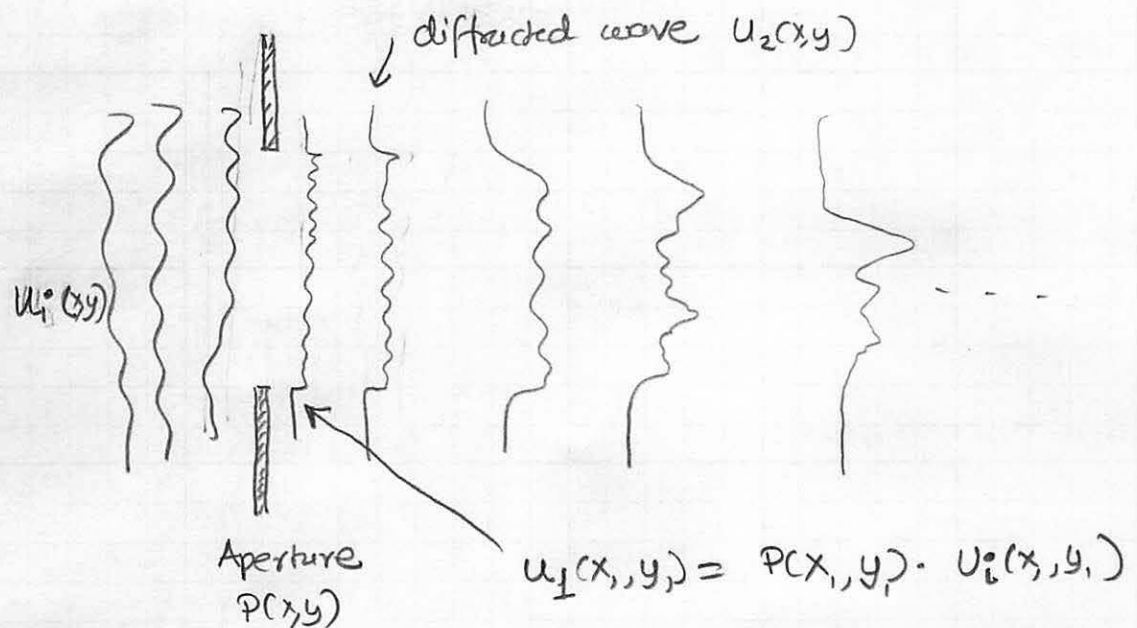 diffracted wave U₂(x,y)
Uᵢ(x,y)
Aperture
P(x,y)
U₁(x₁,y₁) = P(x₁,y₁) · Uᵢ(x₁,y₁)